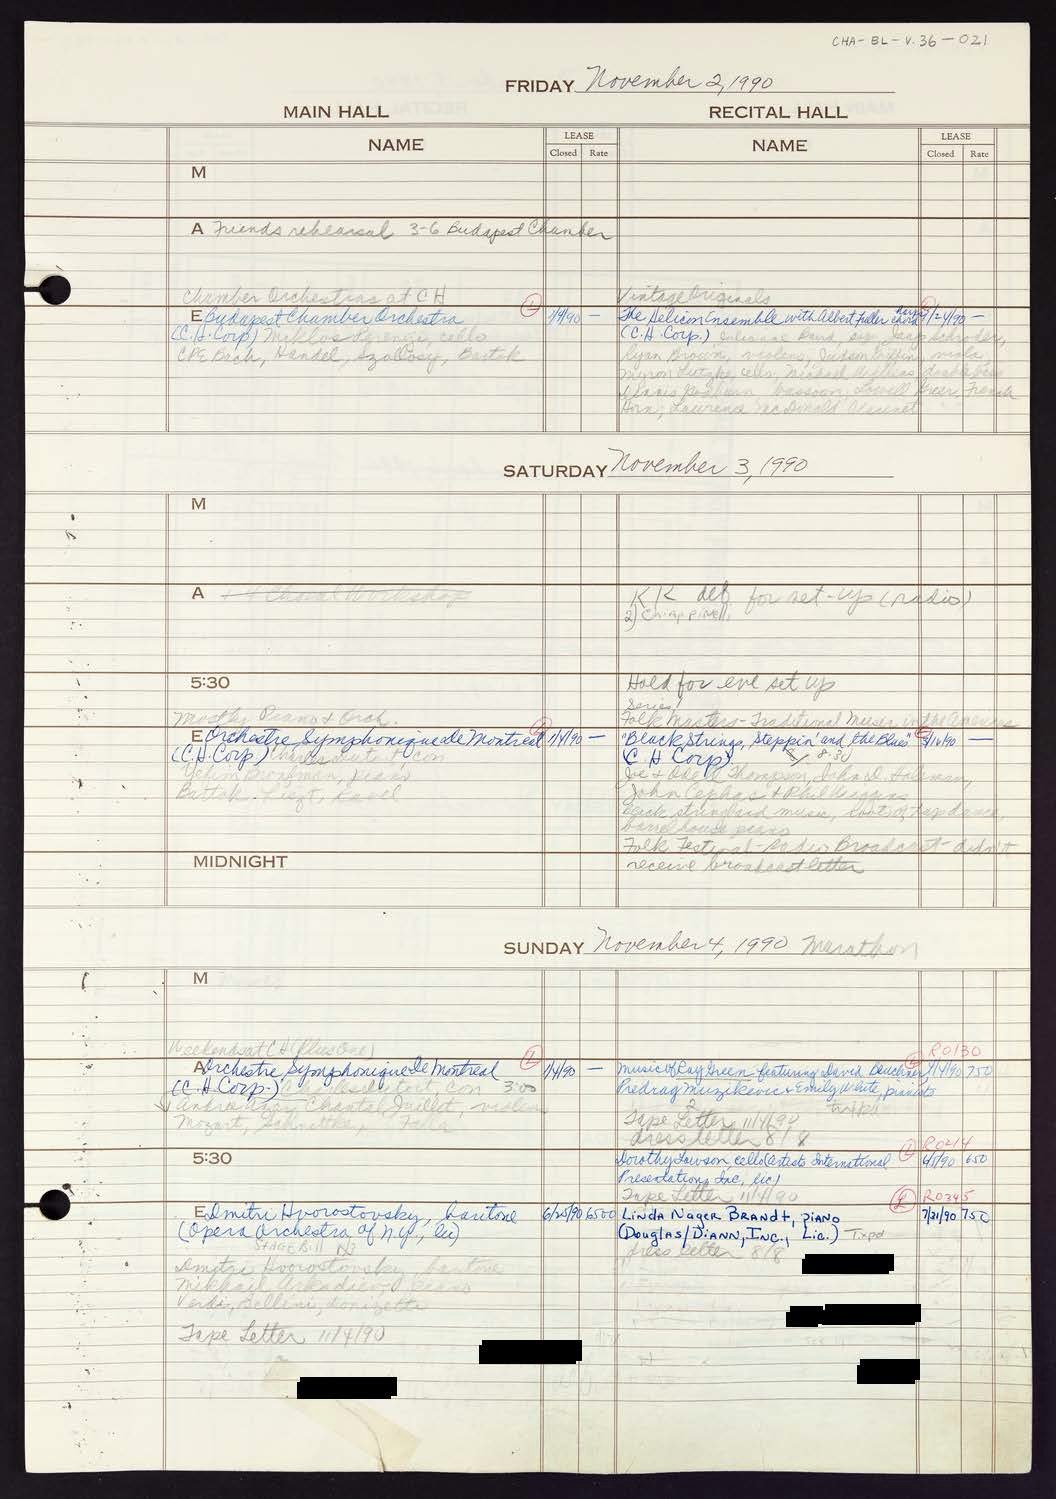 CHA-BL-V.36-021
FRIDAY November 2, 1990
MAIN HALL
RECITAL HALL
NAME
LEASE
Closed Rate
NAME
LEASE
Closed Rate
M
A Friends rehearsal 3-6 Budapest Chamber
Chamber Orchestras at CH
E Budapest Chamber Orchestra L 1/4/90 —
(C.H. Corp) Miklos Perenyi cello
CPE Bach, Handel, Szollosy, Bartok
Vintage Originals
The Helicon Ensemble with Albert Fuller 1/24/90 —
(C.H. Corp.) Julianne Baird, sop Jaap Schroder,
Ryan Brown, violins, Judson Griffin, viola
Myron Lutzke, cello, Michael Willens double bass
Dennis Godburn bassoon, Lowell Greer, French
Horn, Lawrence McDonald Clarinet
SATURDAY November 3, 1990
M
A 1-4 Choral Workshop
KK def. for set-up (radio)
5:30
Hold for eve set up
Series:
Mostly Piano & Orch.
Folk Masters-Traditional Music in the Americas
E Orchestre Symphonique de Montreal 1/4/90 —
(C.H. Corp) Charles Dutoit con
Yefim Bronfman, piano
Bartok, Liszt, Ravel
"Black Strings, Steppin' and the Blues" 3/16/90 —
(C H Corp) 8:30
Joe & Odell Thompson, John D. Holeman,
John Cephas & Phil Wiggins
Black stringband music, roots of tap dance,
barrelhouse piano
Folk Festival-Radio Broadcast-didn't
receive broadcast letter
MIDNIGHT
SUNDAY November 4, 1990 Marathon
M
Weekends at CH (Plus One)
A Orchestre Symphonique de Montreal L 1/4/90 —
(C.H. Corp.) Charles Dutoit, con 3:00
Chantal Juillet, violin
Mozart, Schnittke, Falla
R0130
Music of Ray Green featuring David 750
Predrag Muzijevic & Emily White, pianists
Tape Letter 11/4/90
dress letter 8/8
5:30
L R0214
Dorothy Lawson, cello (Artists International 650
Presentations, Inc, lic)
Tape Letter 11/4/90
L R0345
E Dmitri Hvorostovsky, baritone 6/25/90 6500
(Opera Orchestra of N.Y., lic)
STAGE BILL
Dmitri Hvorostovsky, baritone
Mikhail Arkadiev, piano
Verdi, Bellini, Donizetti
Tape Letter 11/4/90
Linda Nager Brandt, piano 7/31/90 750
(Douglas/Diann, Inc., Lic.) Txpd
dress letter 8/8